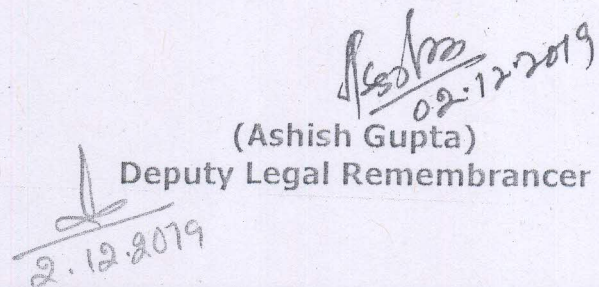 02.12.2019
(Ashish Gupta)
Deputy Legal Remembrancer
2.12.2019